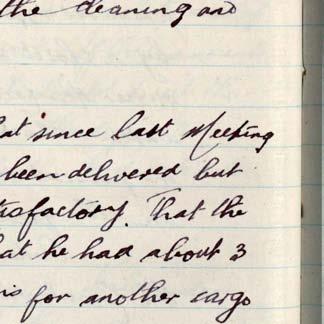 the cleaning and
at since last Meeting
been delivered but
tisfactory. That the
at he had about 3
is for another cargo